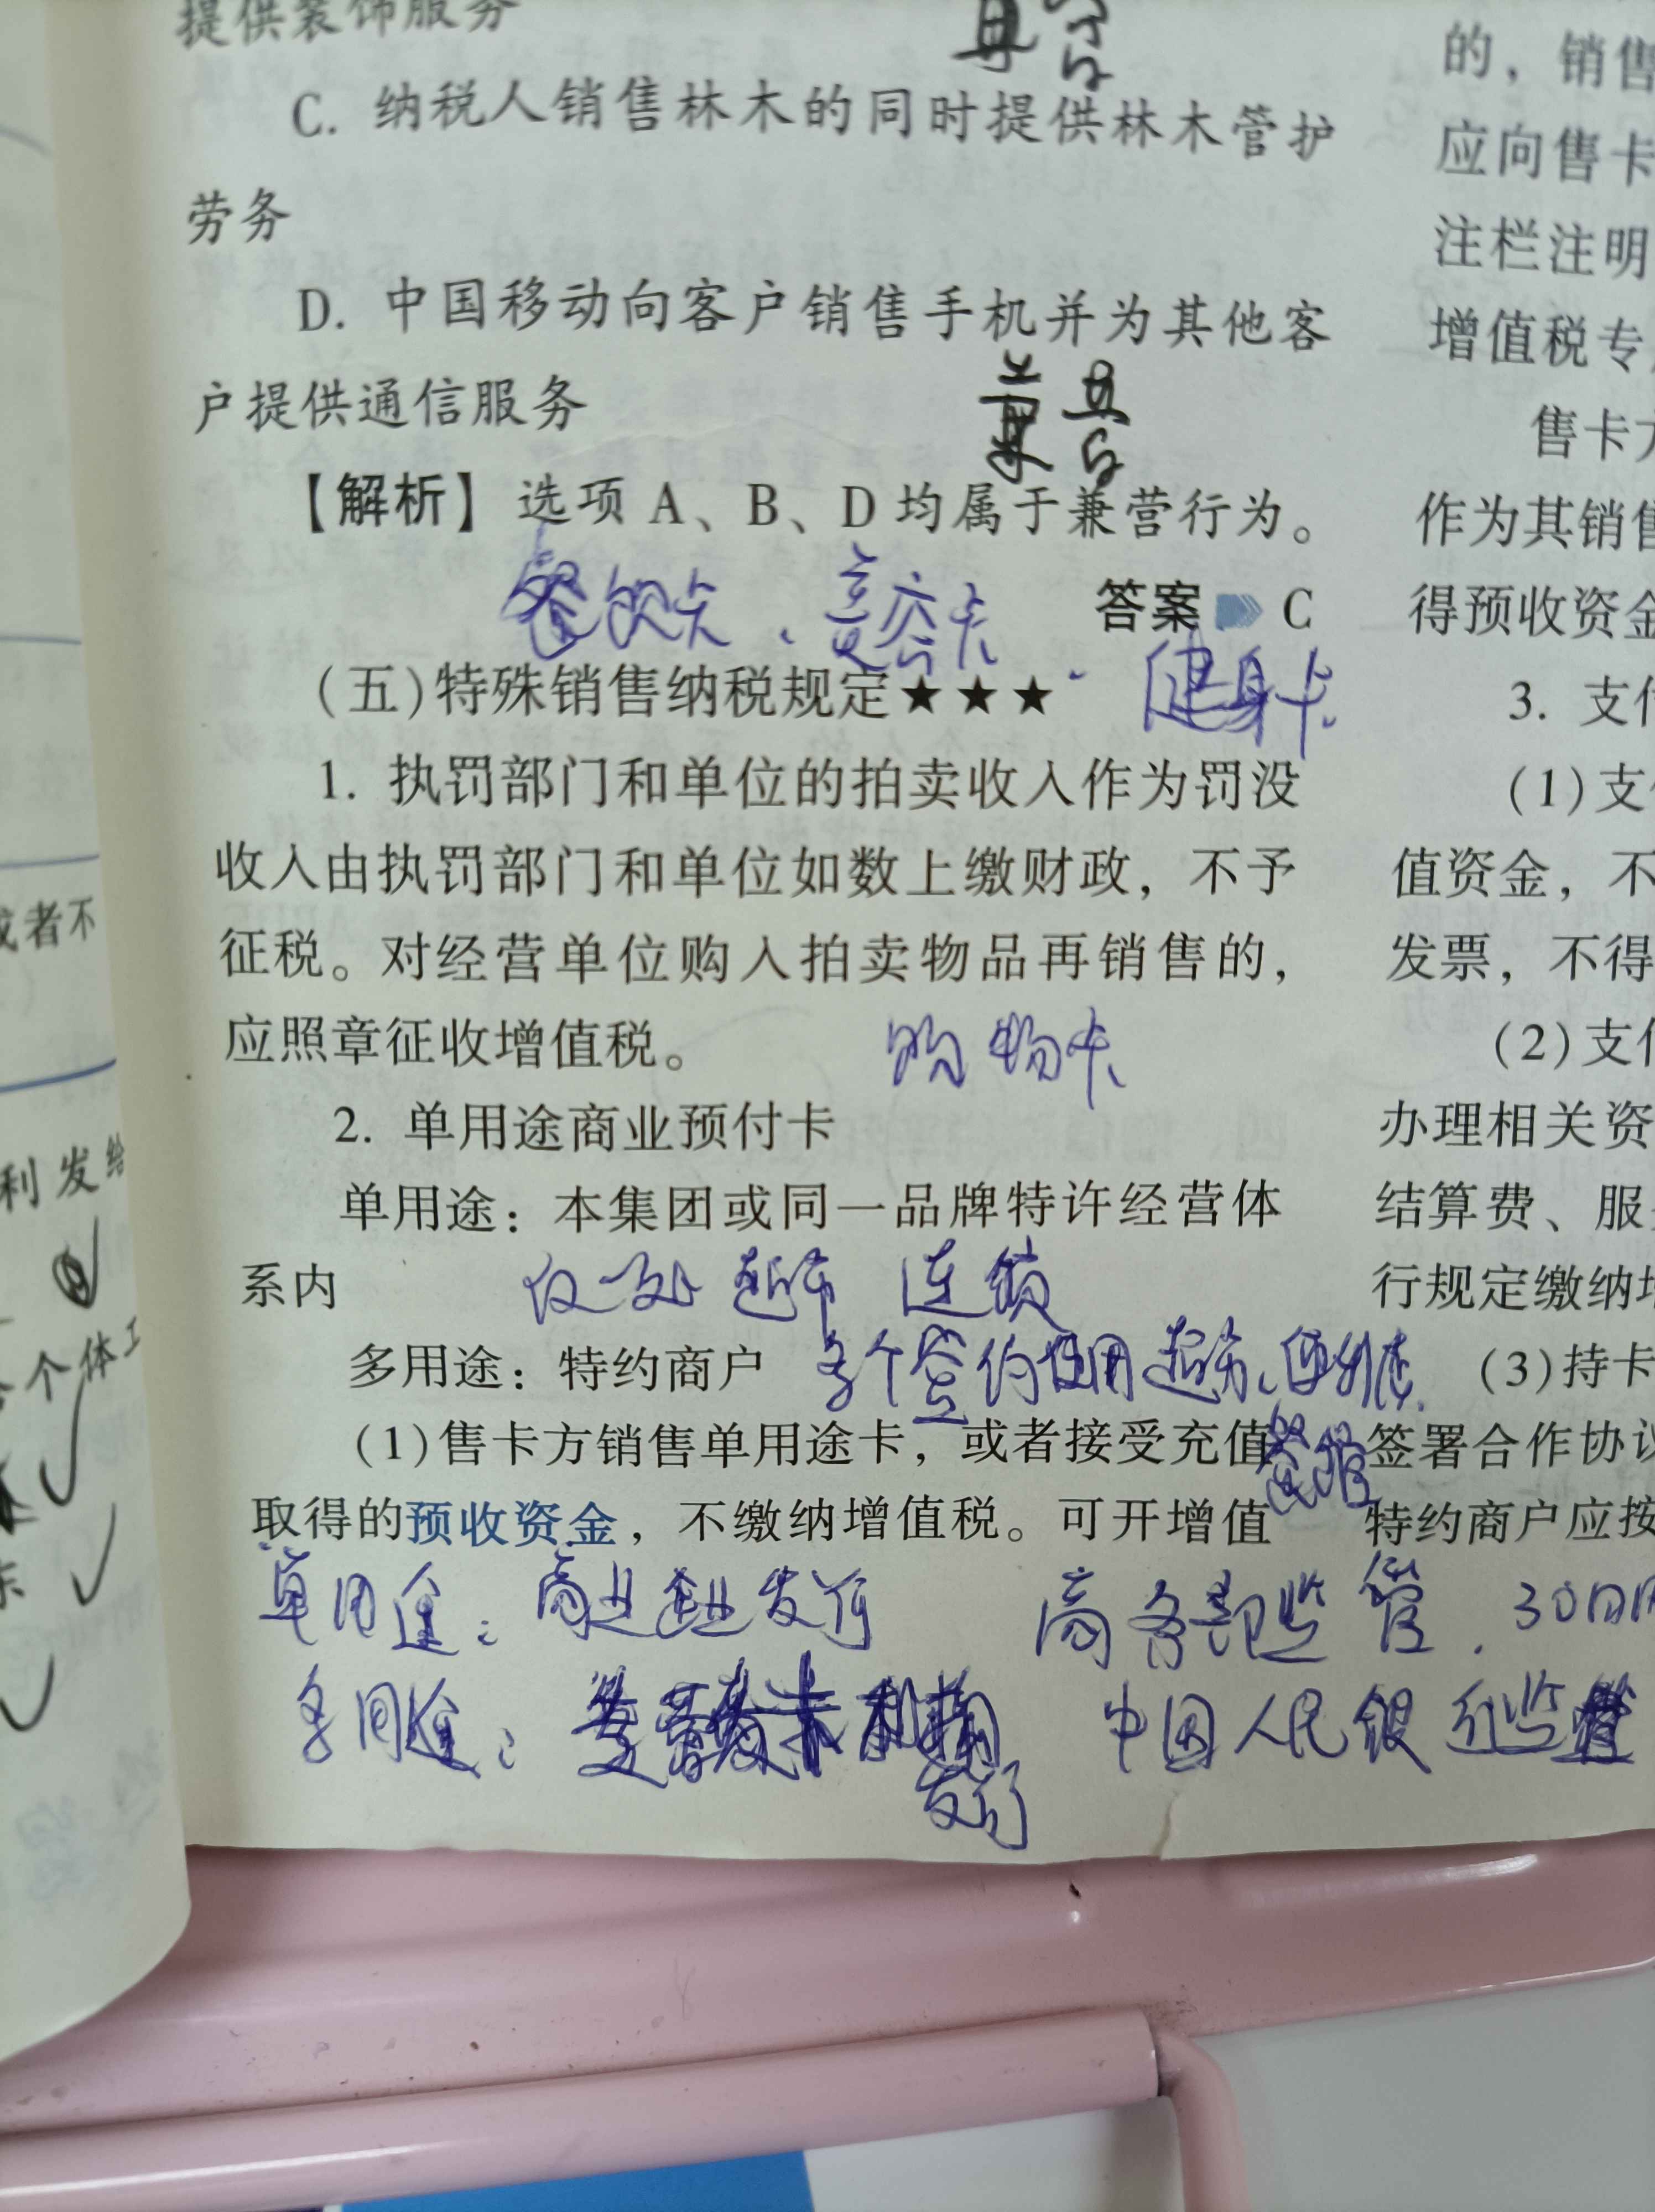 提供装饰服务
C. 纳税人销售林木的同时提供林木管护
劳务
D. 中国移动向客户销售手机并为其他客
户提供通信服务
兼营
【解析】选项 A、B、D 均属于兼营行为。
餐饮卡、美容卡、健身卡
答案 C
(五)特殊销售纳税规定★★★
1. 执罚部门和单位的拍卖收入作为罚没
收入由执罚部门和单位如数上缴财政，不予
征税。对经营单位购入拍卖物品再销售的，
应照章征收增值税。
购物卡
2. 单用途商业预付卡
单用途：本集团或同一品牌特许经营体
系内
仅一处 超市 连锁
多用途：特约商户
多个签约使用 超市、便利店
(1)售卡方销售单用途卡，或者接受充值
取得的预收资金，不缴纳增值税。可开增值
单用途：商业企业发行 商务部监管.30日内
多用途： 发行 中国人民银行监管
的，销售
应向售卡
注栏注明
增值税专
售卡方
作为其销售
得预收资金
3. 支付
(1)支付
值资金，不
发票，不得
(2)支付
办理相关资
结算费、服
行规定缴纳增
(3)持卡
签署合作协议
特约商户应按
或者不
利发给
个体工